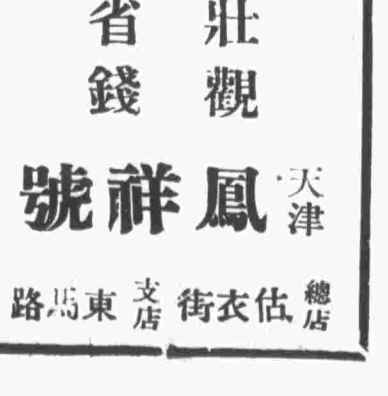 壯觀
省錢
天津
鳳祥號
總店
估衣街
支店
東馬路